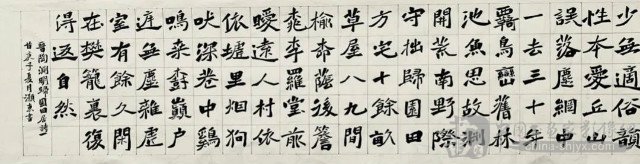 少無適俗韻
性本愛丘山
誤落塵網中
一去三十年
羈鳥戀舊林
池魚思故淵
開荒南野際
守拙歸園田
方宅十餘畝
草屋八九間
榆柳蔭後簷
桃李羅堂前
曖〻遠人村依
依墟里烟狗
吠深巷中鷄
鳴桑樹巔户
庭無塵雜虛
室有餘閑久
在樊籠裏復
得返自然
晉陶淵明歸園田居詩
庚子夏月書